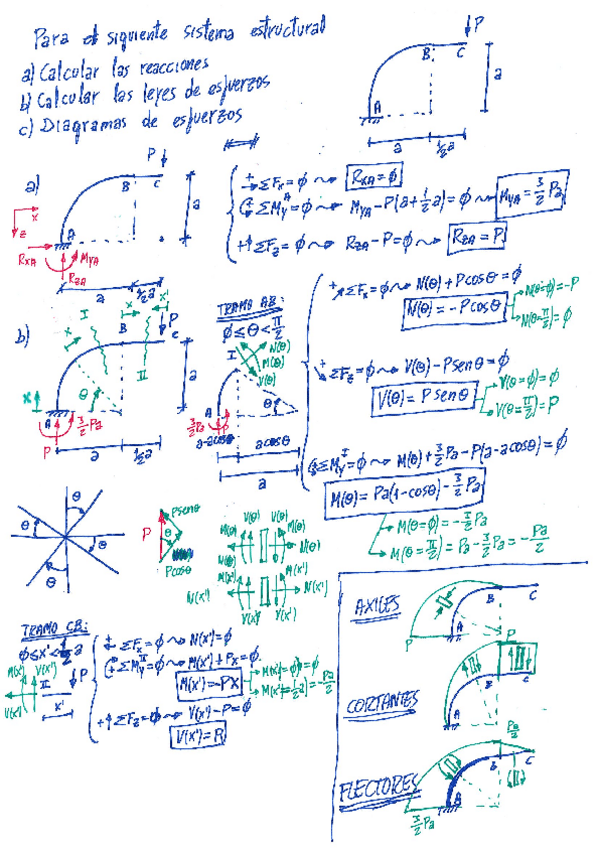 Para el siguiente sistema estructural
a) Calcular las reacciones
b) Calcular las leyes de esfuerzos
c) Diagramas de esfuerzos
P
A
B
C
a
a
½a
a)
P
B
C
a
x
z
A
R_XA
M_YA
R_ZA
a
½a
ΣF_x = ϕ ⤳ R_XA = ϕ
ΣM_y^A = ϕ ⤳ M_YA - P(a + ½a) = ϕ ⤳ M_YA = 3/2 Pa
ΣF_z = ϕ ⤳ R_ZA - P = ϕ ⤳ R_ZA = P
b)
x
I
B
x'
P
C
II
θ
a
x
A
3/2 Pa
P
a
½a
TRAMO AB:
ϕ ≤ θ < π/2
I
N(θ)
M(θ)
V(θ)
θ
A
3/2 Pa
P
a-acosθ
acosθ
a
ΣF_x = ϕ ⤳ N(θ) + Pcosθ = ϕ
N(θ) = -Pcosθ
N(θ=ϕ) = -P
N(θ=π/2) = ϕ
ΣF_z = ϕ ⤳ V(θ) - Psenθ = ϕ
V(θ) = Psenθ
V(θ=ϕ) = ϕ
V(θ=π/2) = P
ΣM_y^I = ϕ ⤳ M(θ) + 3/2 Pa - P(a - acosθ) = ϕ
M(θ) = Pa(1-cosθ) - 3/2 Pa
M(θ=ϕ) = -3/2 Pa
M(θ=π/2) = Pa - 3/2 Pa = -Pa/2
θ
θ
θ
θ
P
Psenθ
θ
Pcosθ
V(θ) V(θ)
M(θ) M(θ)
N(θ) N(θ)
M(x') M(x')
N(x') N(x')
V(x') V(x')
TRAMO CB:
ϕ ≤ x' < ½a
M(x') V(x')
II
P
x'
ΣF_x = ϕ ⤳ N(x') = ϕ
ΣM_y^II = ϕ ⤳ M(x') + Px = ϕ
M(x') = -Px
M(x'=ϕ) = ϕ
M(x'=½a) = -Pa/2
ΣF_z = ϕ ⤳ V(x') - P = ϕ
V(x') = P
AXILES
B
C
A
P
P
CORTANTES
B
C
A
FLECTORES
Pa/2
B
C
A
3/2 Pa